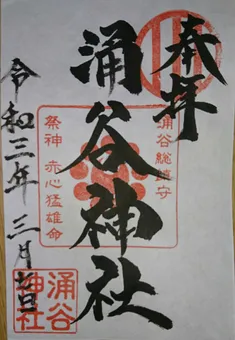 奉拝
涌谷神社
涌谷総鎮守
祭神 赤心猛雄命
令和三年 三月 日
涌谷神社